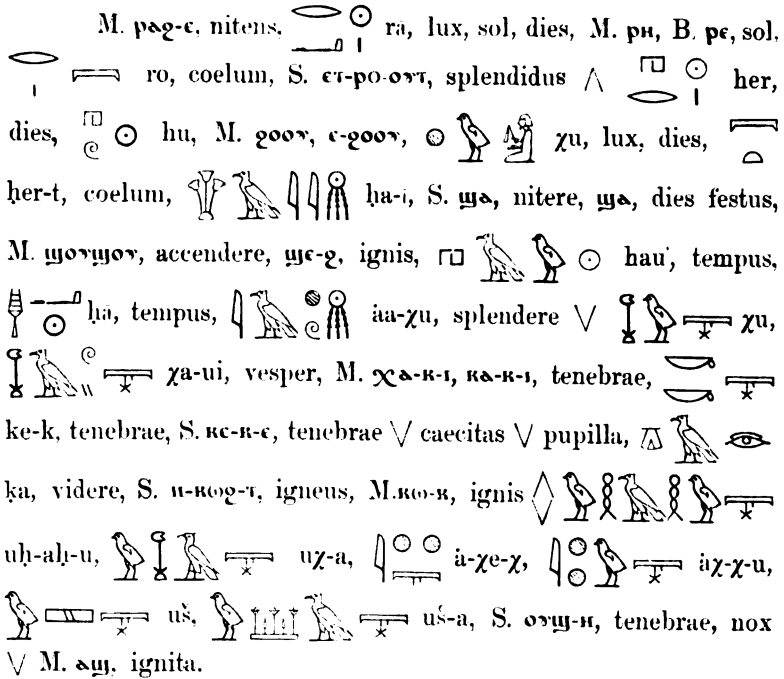 M. ⲣⲁϩ-ⲉ, nitens. rā, lux, sol, dies, M. ⲣⲏ, B. ⲣⲉ, sol,
ro, coelum, S. ⲉⲧ-ⲣⲟ-ⲟⲩⲧ, splendidus ⋀ her,
dies, hu, M. ϩⲟⲟⲩ, ⲉ-ϩⲟⲟⲩ, χu, lux, dies,
ḥer-t, coelum, ḥa-i, S. ϣⲁ, nitere, ϣⲁ, dies festus,
M. ϣⲟⲩϣⲟⲩ, accendere, ϣⲉ-ϩ, ignis, hau, tempus,
ḥā, tempus, ȧa-χu, splendere ⋁ χu,
χa-ui, vesper, M. ⲭⲁ-ⲕ-ⲓ, ⲕⲁ-ⲕ-ⲓ, tenebrae,
ke-k, tenebrae, S. ⲕⲉ-ⲕ-ⲉ, tenebrae ⋁ caecitas ⋁ pupilla,
ḳa, videre, S. ⲛ-ⲕⲱϩ-ⲧ, igneus, M. ⲕⲱ-ⲕ, ignis ◊
uḥ-aḥ-u, uχ-a, ȧ-χe-χ, ȧχ-χ-u,
uš, uš-a, S. ⲟⲩϣ-ⲏ, tenebrae, nox
⋁ M. ⲁϣ, ignita.